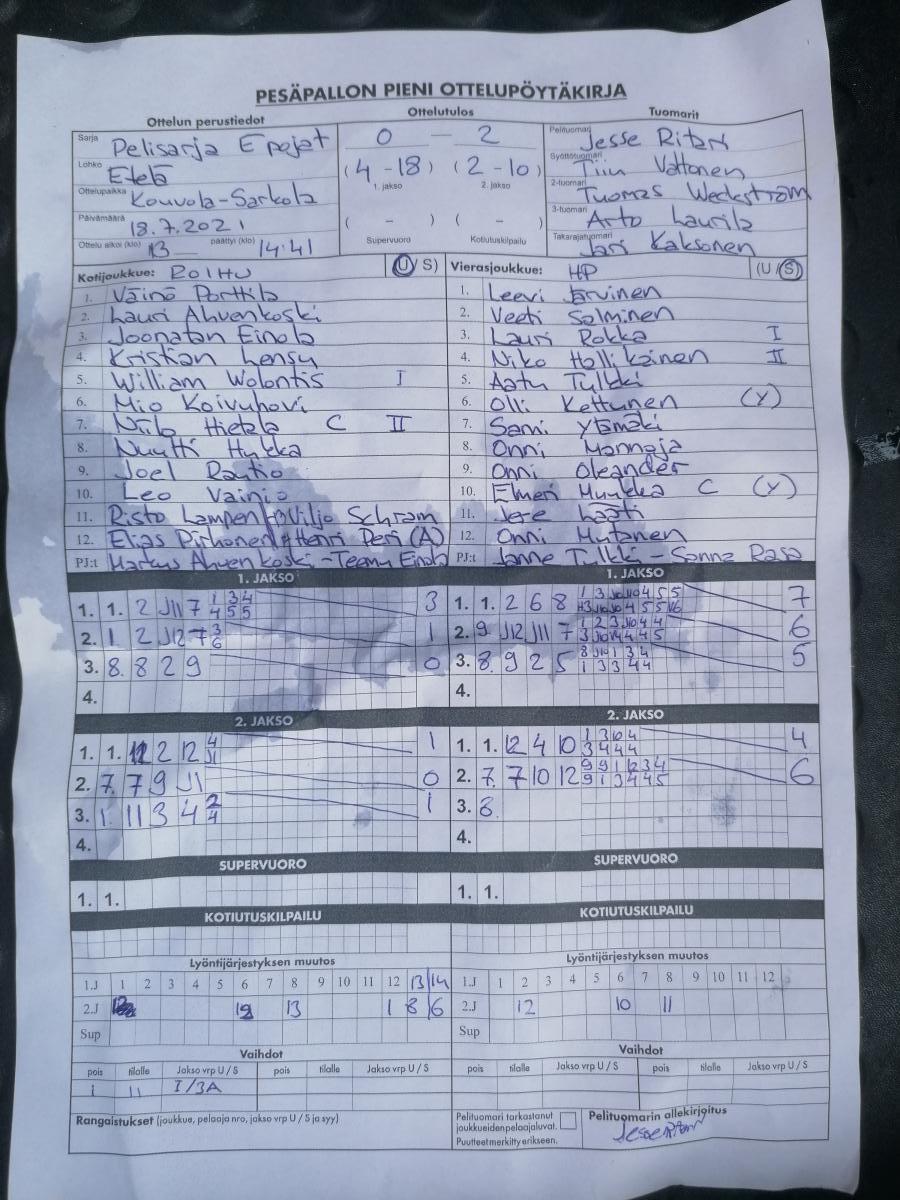 PESÄPALLON PIENI OTTELUPÖYTÄKIRJA
Ottelun perustiedot
Ottelutulos
Tuomarit
Sarja Pelisarja E pojat
0 — 2
Pelituomari Jesse Ritari
Lohko Etelä
(4-18) (2-10)
1. jakso 2. jakso
Syöttötuomari Vättönen
Ottelupaikka Kouvola-Sarkola
2-tuomari Tuomas Weckström
Päivämäärä 18.7.2021
( - ) ( - )
3-tuomari Arto Laurila
Ottelu alkoi (klo) 13 päättyi (klo) 14:41
Supervuoro Kotiutuskilpailu
Takarajatuomari Jari Kaksonen
Kotijoukkue: ROIHU (U/S)
Vierasjoukkue: HP (U/S)
1. Väinö Porttila
1. Leevi Järvinen
2. Lauri Ahvenkoski
2. Veeti Salminen
3. Joonatan Einola
3. Lauri Rokka I
4. Kristian Lensu
4. Niko Hollikainen II
5. William Wolontis I
5. Aatu Tylkki
6. Mio Koivuhovi
6. Olli Kettunen (Y)
7. Niilo Hietala C II
7. Sami Ylämäki
8. Nuutti Hukka
8. Onni Mannoja
9. Joel Rautio
9. Onni Oleander
10. Leo Vainio
10. Elmeri Muukka C (Y)
11. Risto Lampen Viljo Schram
11. Jere Laati
12. Elias Pirhonen Henri Peri (A)
12. Onni Mutanen
PJ:t Markus Ahvenkoski - Teemu Einola
PJ:t Janne Tylkki - Sanna Rasa
1. JAKSO
1. JAKSO
1. 1. 2 J11 7 1 3 4 3
4 5 5
1. 1. 2 6 8 7
2. 1 2 J12 7 3 1
6
2. 9 J12 J11 7 6
3. 8. 8 2 9 0
3. 8. 9 2 5 5
4.
4.
2. JAKSO
2. JAKSO
1. 1. 2 12 4 1
J1
1. 1. 12 4 10 4
3 4 4 4
2. 7. 7 9 J1 0
2. 7. 7 10 12 9 9 1 2 3 4 6
9 1 3 4 4 5
3. 1. 11 3 4 2 1
4
3. 8.
4.
4.
SUPERVUORO
SUPERVUORO
1. 1.
1. 1.
KOTIUTUSKILPAILU
KOTIUTUSKILPAILU
Lyöntijärjestyksen muutos
Lyöntijärjestyksen muutos
1.J 1 2 3 4 5 6 7 8 9 10 11 12 13 14
1.J 1 2 3 4 5 6 7 8 9 10 11 12
2.J 13 1 8 6
2.J 12 10 11
Sup
Sup
Vaihdot
Vaihdot
pois tilalle Jakso vrp U / S pois tilalle Jakso vrp U / S
pois tilalle Jakso vrp U / S pois tilalle Jakso vrp U / S
1 11 I/3A
Rangaistukset (joukkue, pelaaja nro, jakso vrp U / S ja syy)
Pelituomari tarkastanut
joukkueiden pelaajaluvat.
Puutteet merkitty erikseen.
Pelituomarin allekirjoitus